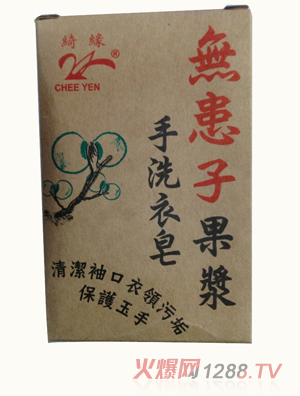 綺緣
®
CHEE YEN
無患子果漿
手洗衣皂
清潔袖口衣領污垢
保護玉手
火爆网1288.TV